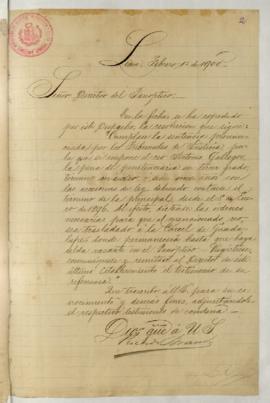 2
Lima, Febrero 1º de 1900
Señor Director del Panóptico.
En la fecha se ha expedido
por este Despacho, la resolucion que sigue:
"Cumplase la sentencia pronun-
ciada por los Tribunales de Justicia por
la que se impone al reo Antonio Gallegos,
la pena de penitenciaria en tercer grado,
término
con
las accesorias de ley, debiendo contarse el
término de la principal desde el
de 1896. Al efecto, dictense las ordenes
necesarias para que el mencionado reo
sea trasladado a la Carcel de Guada-
lupe donde permanecerá hasta que haya
celda vacante en el Panóptico. Registrese,
comuniquese y remitase al Director de este
último establecimiento el testimonio de su
referencia"
Que trascribo á US. para su co-
nocimiento y demas fines, adjuntándole
el respectivo testimonio de condena.
Dios gue. á U.S.